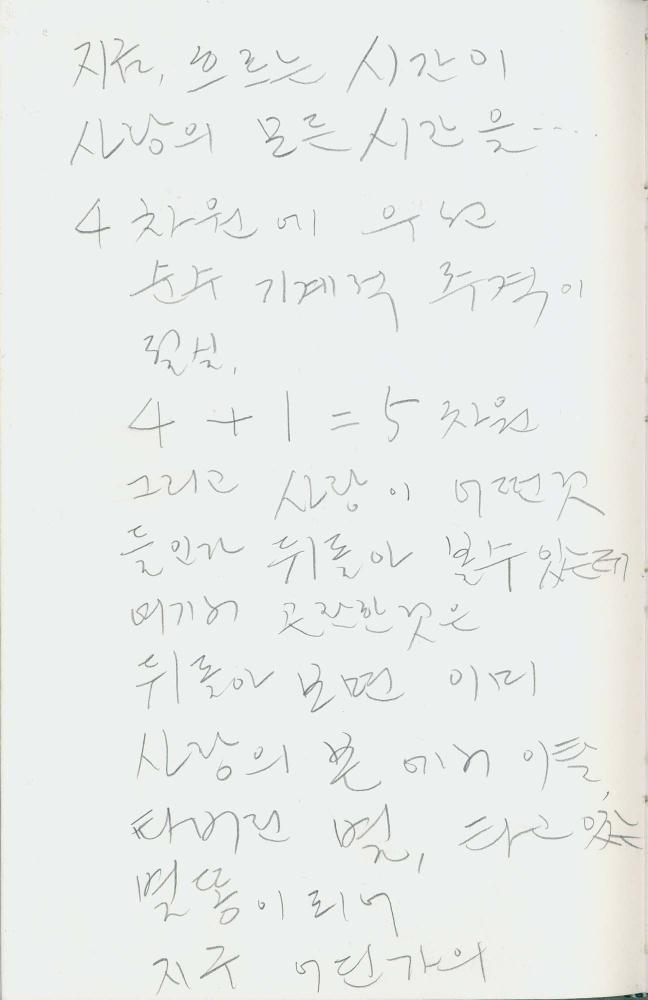 지금, 흐르는 시간이
사랑의 모든 시간을....
4 차원에
순수 기계적 추격이
4 + 1 = 5 차원
그리고 사랑이 어떤것
들인가 뒤돌아 볼수 있는데
여기서 곤란한것은
뒤돌아 보면 이미
사랑의 본 에서 이탈,
타버린 별, 타고 있는
별똥이 되어
지구 어딘가의